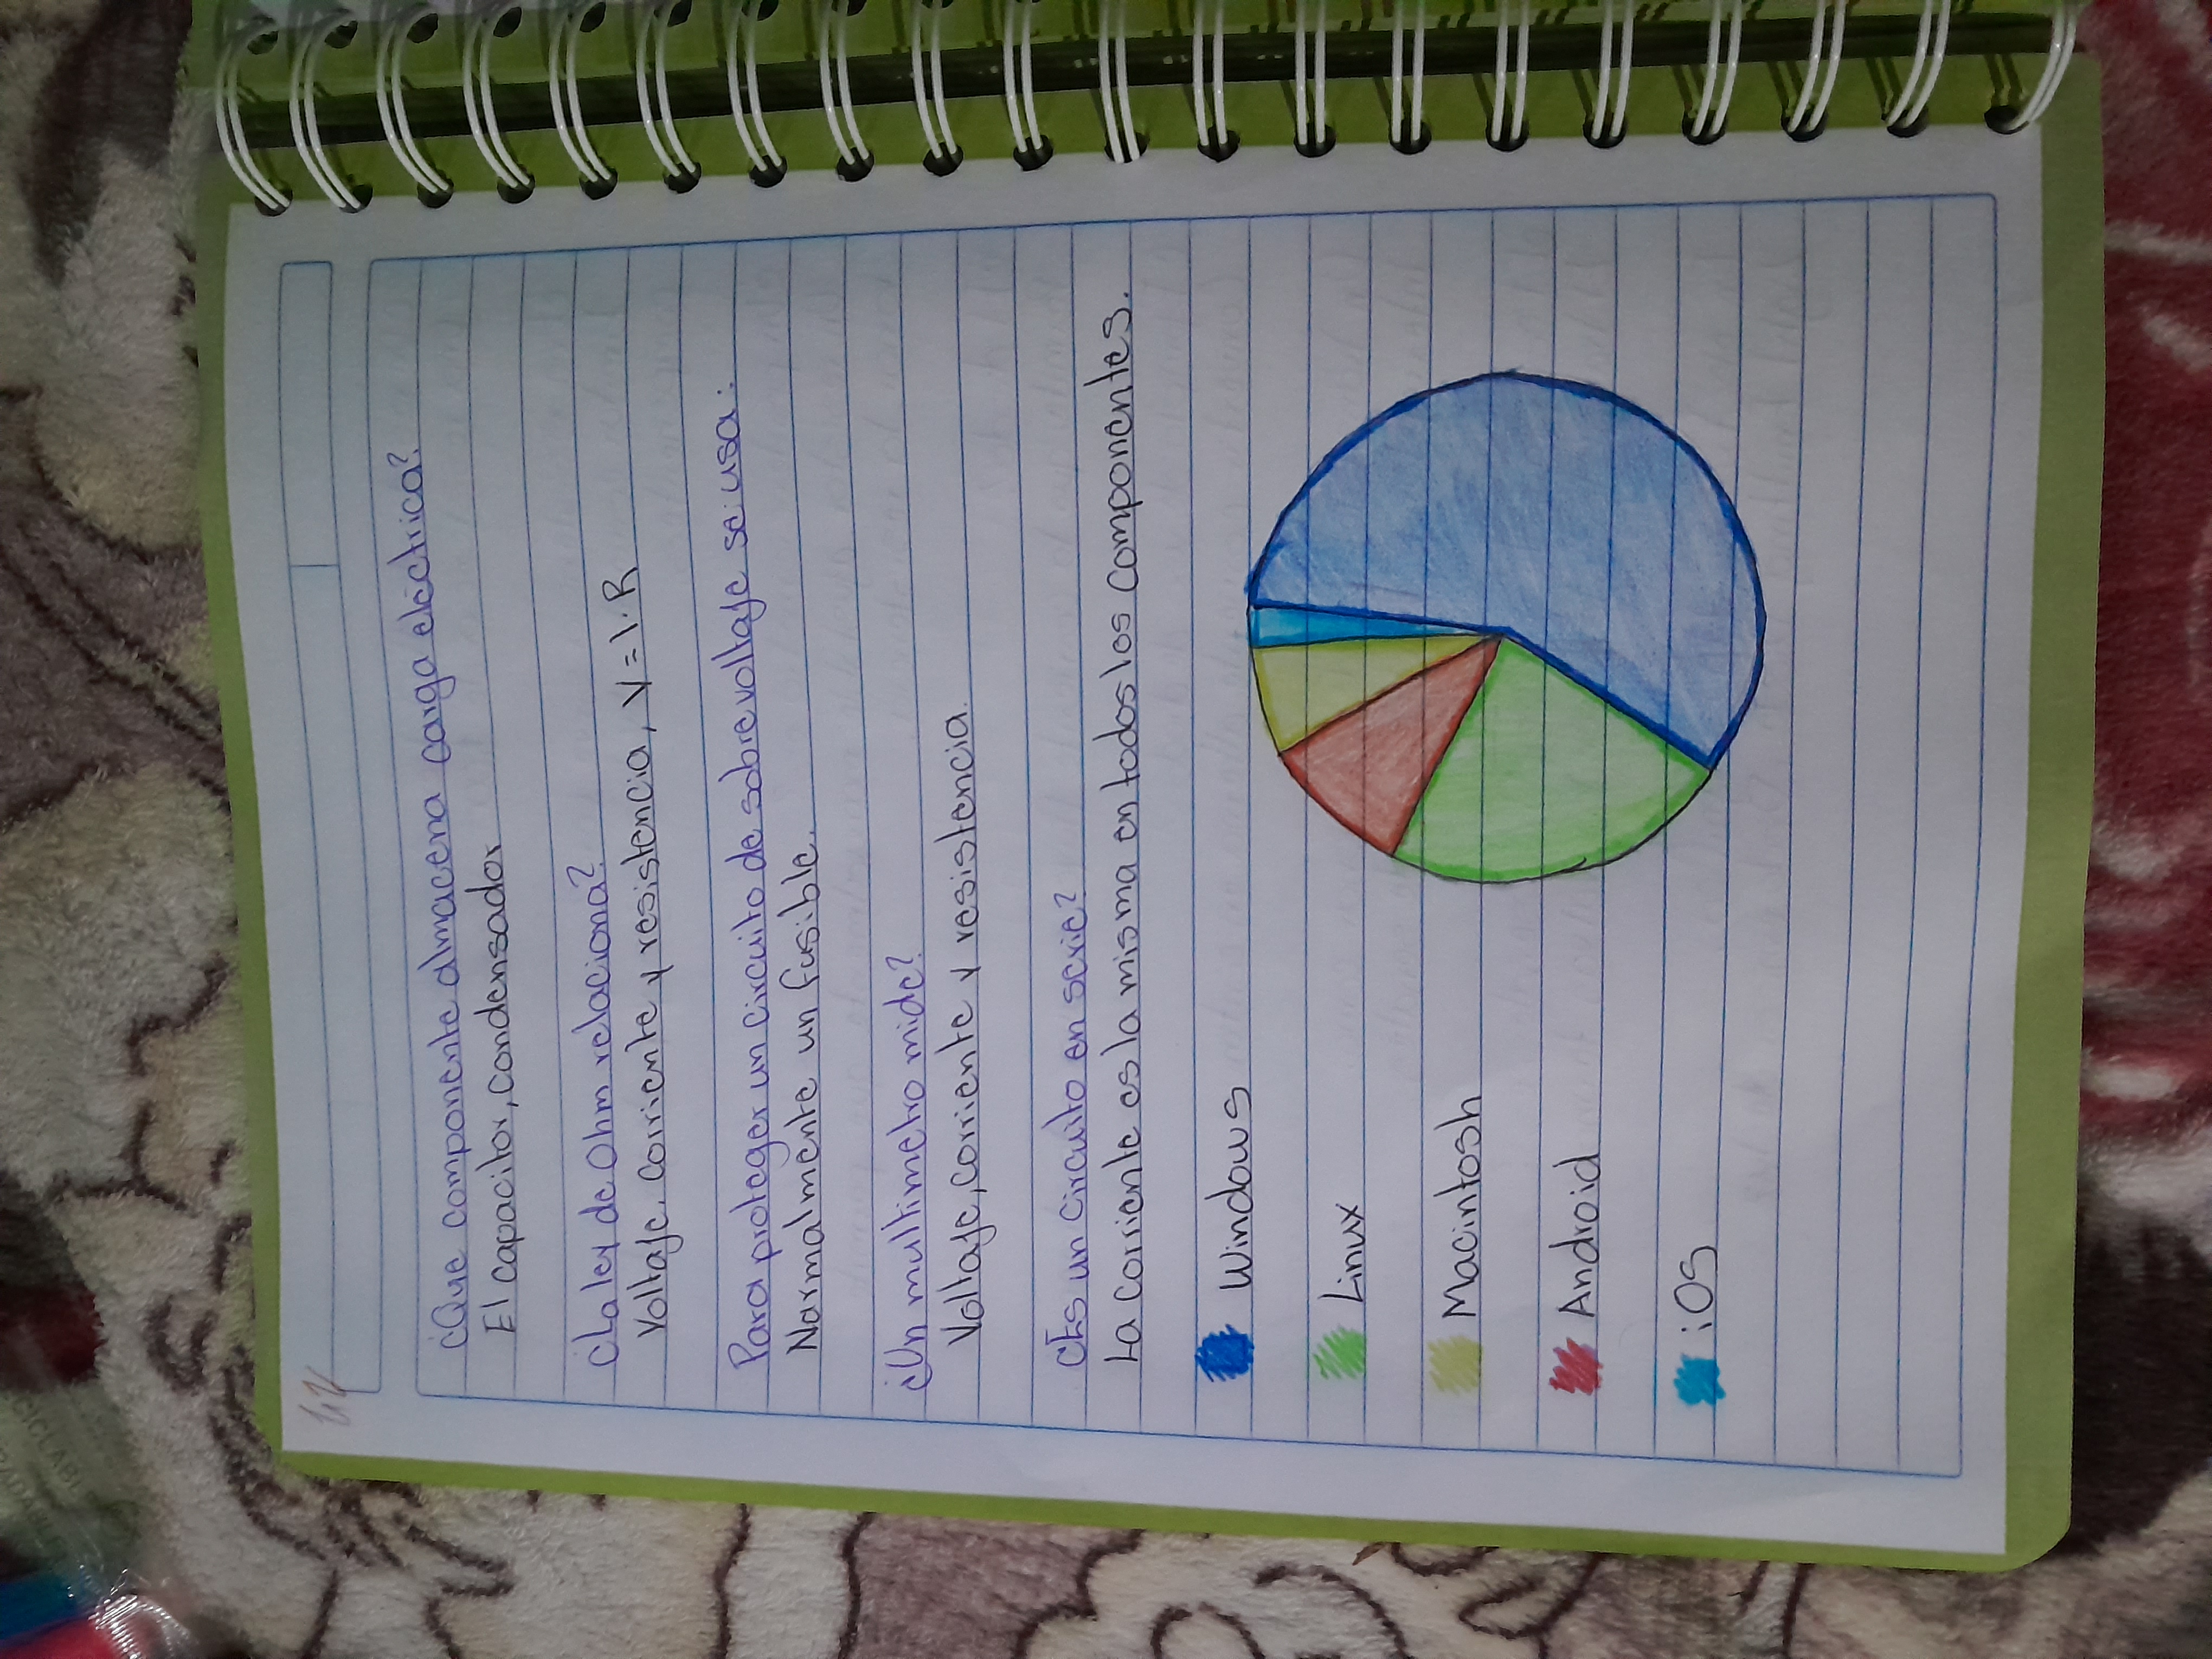 ¿Que componente almacena carga eléctrica?
El capacitor, condensador
¿La ley de Ohm relaciona?
Voltaje, corriente y resistencia, V = I · R
Para proteger un circuito de sobrevoltaje se usa:
Normalmente un fusible.
¿Un multimetro mide?
Voltaje, corriente y resistencia.
¿Es un circuito en serie?
La corriente es la misma en todos los componentes.
Windows
Linux
Macintosh
Android
iOS